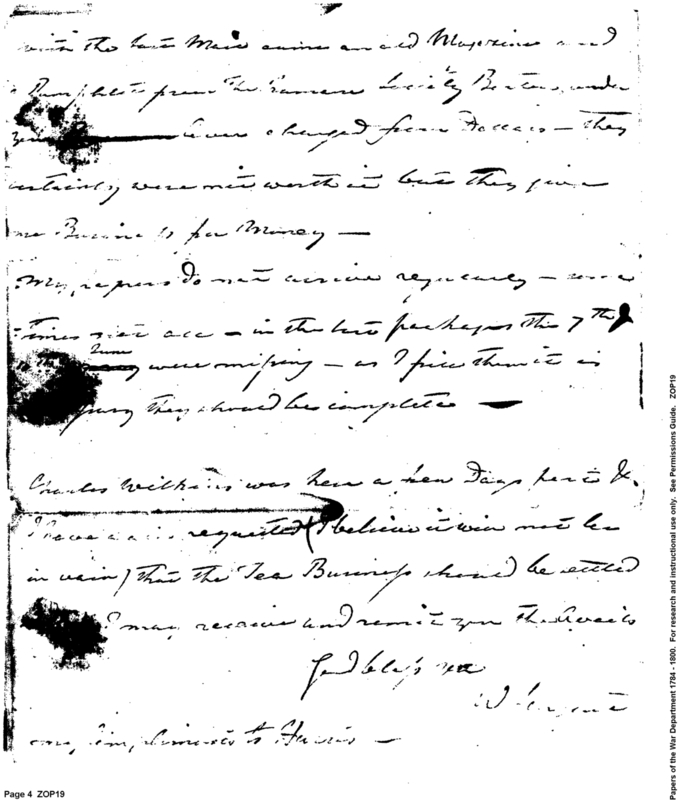 with the last Mail came an old Magazine and
a Pamphlet from the Humane Society Boston, under
your cover charged four Dollars — they
certainly were not worth it but they give
me Business for Money —
My papers do not arrive regularly — some
Times not all — in the last packages the 7th
June were missing — as I file them it is
they should be complete —
Charles Wilkins was here a few Days past &
I have requested (I believe it will not be
in vain) that the Tea Business should be settled
I may receive and remit you the Avails
God bless you
W Sargent
my Compliments to Harris —
Page 4 ZOP19
Papers of the War Department 1784 - 1800. For research and instructional use only. See Permissions Guide. ZOP19